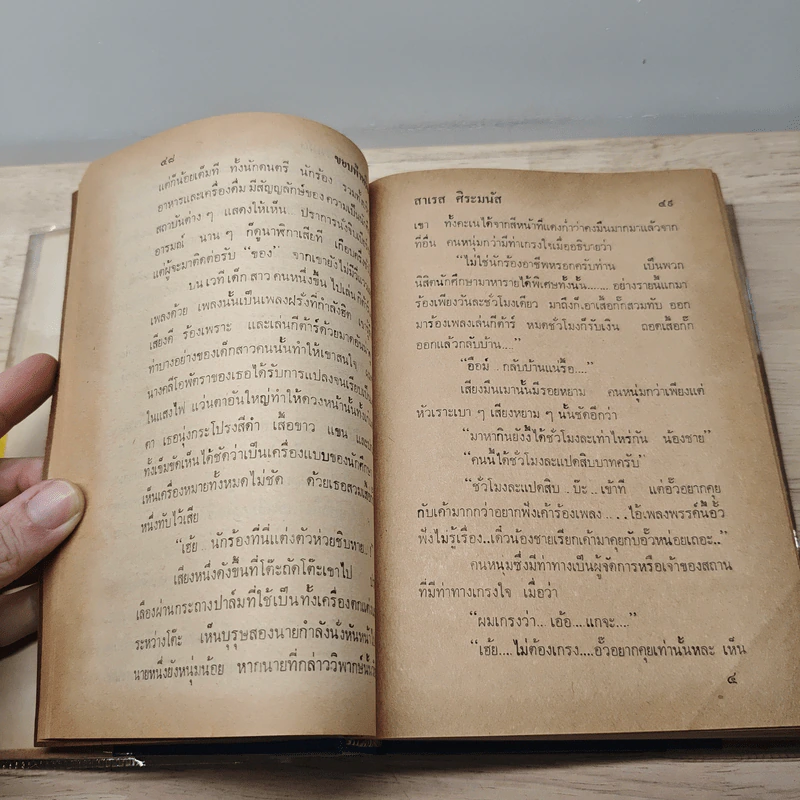 ๔๘
ขอบฟ้า
แต่ก็น้อยเต็มที ทั้งนักดนตรี นักร้อง รวมทั้ง
อาหารและเครื่องดื่ม มีสัญญลักษ์ของ ความเป็น
สถาบันต่าง ๆ แสดงให้เห็น ปราการนั่งจิบ
อารมณ์ นาน ๆ ก็ดูนาฬิกาเสียที เกือบครึ่ง
แต่ผู้จะมาติดต่อรับ “ของ” จากเขายังไม่มี
บนเวที เด็กสาวคนหนึ่งขึ้นไปเล่น
เพลงด้วย เพลงนั้นเป็นเพลงฝรั่งที่กำลังฮิต
เสียงดี ร้องเพราะ และเล่นกีต้าร์ด้วยมาด
ท่าบางอย่างของเด็กสาวคนนั้นทำให้เขาสนใจ
นางคลีโอพัตราของเธอได้รับการแปลงจน
ในแสงไฟ แว่นตาอันใหญ่ทำให้ดวงหน้านั้น
ตา เธอนุ่งกระโปรงสีดำ เสื้อขาว แขน
ทั้งเข็มขัดเห็นได้ชัดว่าเป็นเครื่องแบบของนักศึกษา
เห็นเครื่องหมายทั้งหมดไม่ชัด ด้วยเธอสวม
หนึ่งทับไว้เสีย
“เฮ้ย นักร้องที่นี่แต่งตัวห่วยชิบหาย
เสียงหนึ่งดังขึ้นที่โต๊ะถัดโต๊ะเขาไป
เลืองผ่านกระถางปาล์มที่ใช้เป็น ทั้งเครื่อง
ระหว่างโต๊ะ เห็นบุรุษสองนายกำลังนั่งหันหน้า
นายหนึ่งยังหนุ่มน้อย หากนายที่กล่าววิพากษ์นั้น
สาเรส ศิระมนัส
๔๙
เขา ทั้งคะเนได้จากสีหน้าที่แดงก่ำว่าคงมึนมากมาแล้วจาก
ที่อื่น คนหนุ่มกว่ามีท่าเกรงใจเมื่ออธิบายว่า
“ไม่ใช่นักร้องอาชีพหรอกครับท่าน เป็นพวก
นิสิตนักศึกษามาหารายได้พิเศษทั้งนั้น....... อย่างรายนี้แกมา
ร้องเพียงวันละชั่วโมงเดียว มาถึงก็เอาเสื้อกั๊กสวมทับ ออก
มาร้องเพลงเล่นกีต้าร์ หมดชั่วโมงก็รับเงิน ถอดเสื้อกั๊ก
ออกแล้วกลับบ้าน....”
“อือม์... กลับบ้านแน่รึ้อ....”
เสียงมึนเมานั้นมีรอยหยาม คนหนุ่มกว่าเพียงแต่
หัวเราะเบา ๆ เสียงหยาม ๆ นั้นซัดอีกว่า
“มาหากินยังงี้ได้ชั่วโมงละเท่าไหร่กัน น้องชาย”
“คนนี้ได้ชั่วโมงละแปดสิบบาทครับ”
“ชั่วโมงละแปดสิบ .. บ๊ะ .. เข้าที แต่อั๊วอยากคุย
กับเค้ามากกว่าอยากฟังเค้าร้องเพลง . . . . ไอ้เพลงพรรค์นี้อั๊ว
ฟังไม่รู้เรื่อง..เดี๋วน้องชายเรียกเค้ามาคุยกับอั๊วหน่อยเถอะ..”
คนหนุ่มซึ่งมีท่าทางเป็นผู้จัดการหรือเจ้าของสถาน
ที่มีท่าทางเกรงใจ เมื่อว่า
“ผมเกรงว่า... เอ้อ... แกจะ....”
“เฮ้ย.... ไม่ต้องเกรง.... อั๊วอยากคุยเท่านั้นหละ เห็น
๔